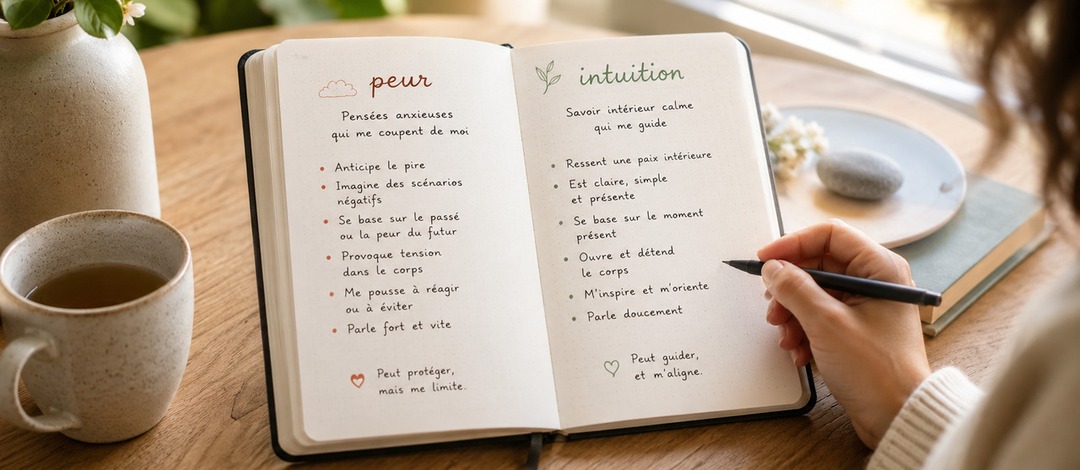 peur
Pensées anxieuses
qui me coupent de moi
• Anticipe le pire
• Imagine des scénarios
négatifs
• Se base sur le passé
ou la peur du futur
• Provoque tension
dans le corps
• Me pousse à réagir
ou à éviter
• Parle fort et vite
Peut protéger,
mais me limite.
intuition
Savoir intérieur calme
qui me guide
• Ressent une paix intérieure
• Est claire, simple
et présente
• Se base sur le moment
présent
• Ouvre et détend
le corps
• M'inspire et m'oriente
• Parle doucement
Peut guider,
et m'aligne.